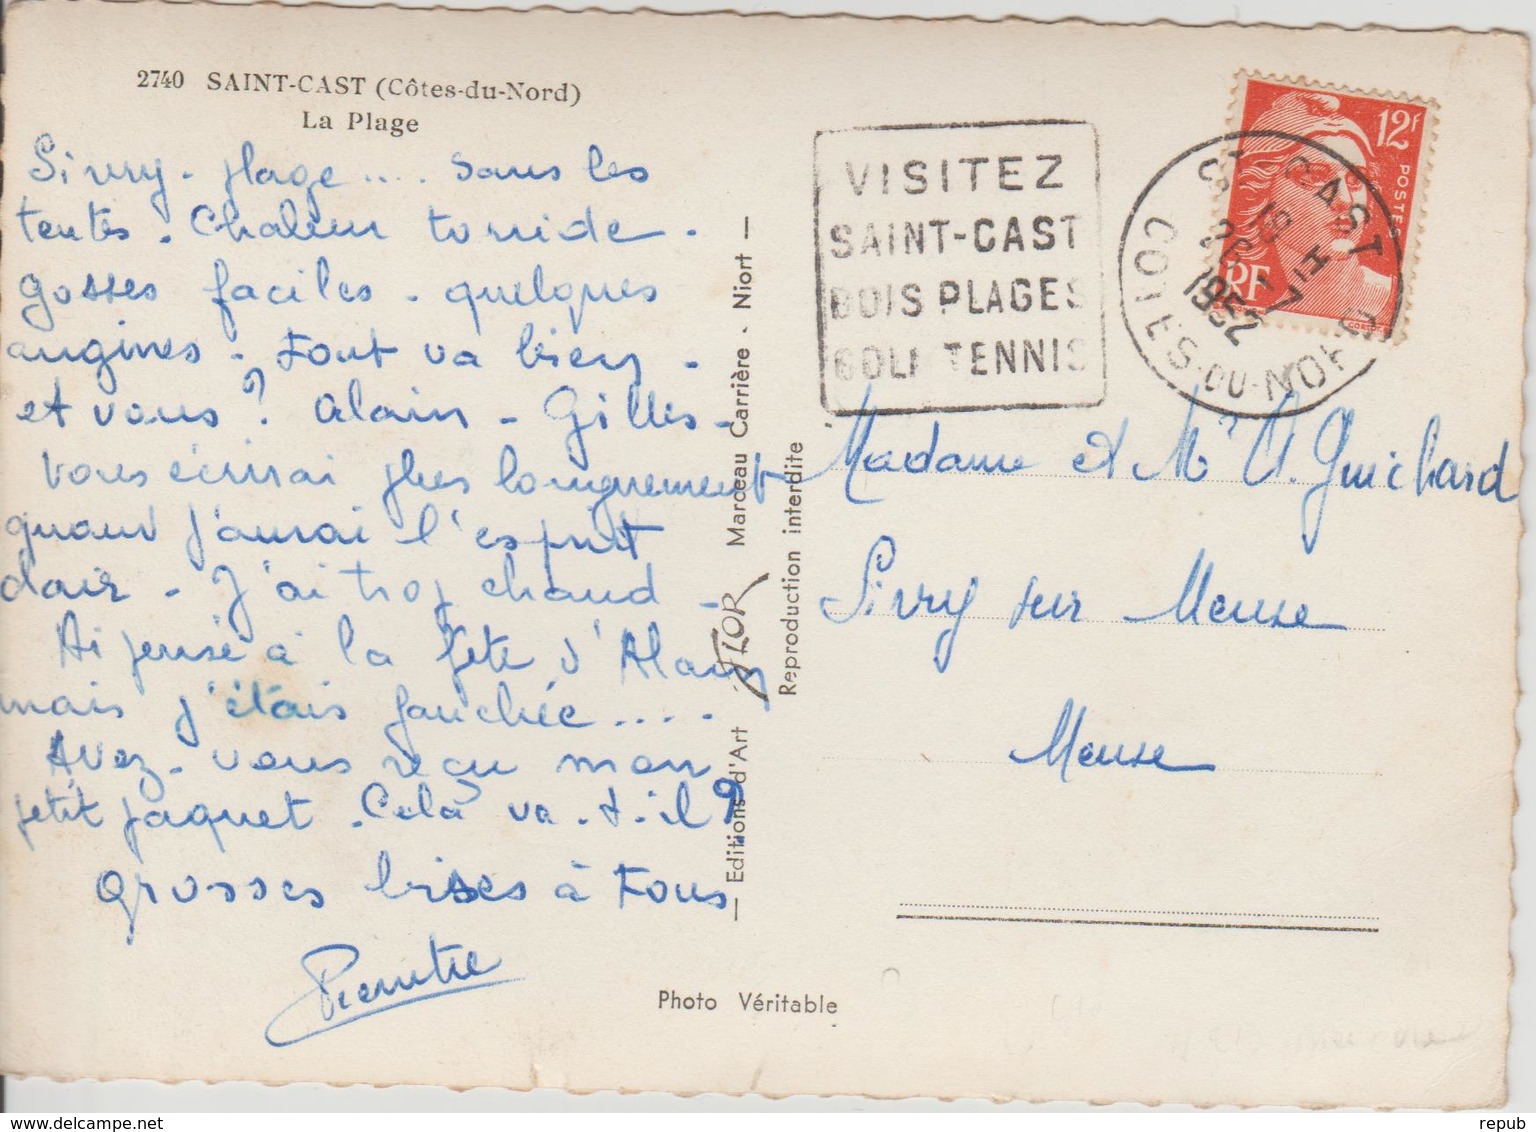 2740 SAINT-CAST (Côtes-du-Nord)
La Plage
Sivry-plage .... sous les
tentes. Chaleur torride.
gosses faciles. quelques
angines. Tout va bien.
et vous ? Alain - Gilles.
Vous écrirai plus longuement
quand j'aurai l'esprit
clair. J'ai trop chaud.
Ai pensé à la fête d'Alain
mais j'étais fauchée ....
Avez-vous reçu mon
petit paquet. Celà va-t-il ?
grosses bises à Tous
Pierrette
— Editions d'Art JLOR Marceau Carrière. Niort —
Reproduction interdite
Photo Véritable
VISITEZ
SAINT-CAST
BOIS PLAGES
GOLF TENNIS
ST CAST
CÔTES-DU-NORD
1952
12F
POSTES
RF
Madame et Mr A. Guichard
Sivry sur Meuse
Meuse
www.delcampe.net
repub